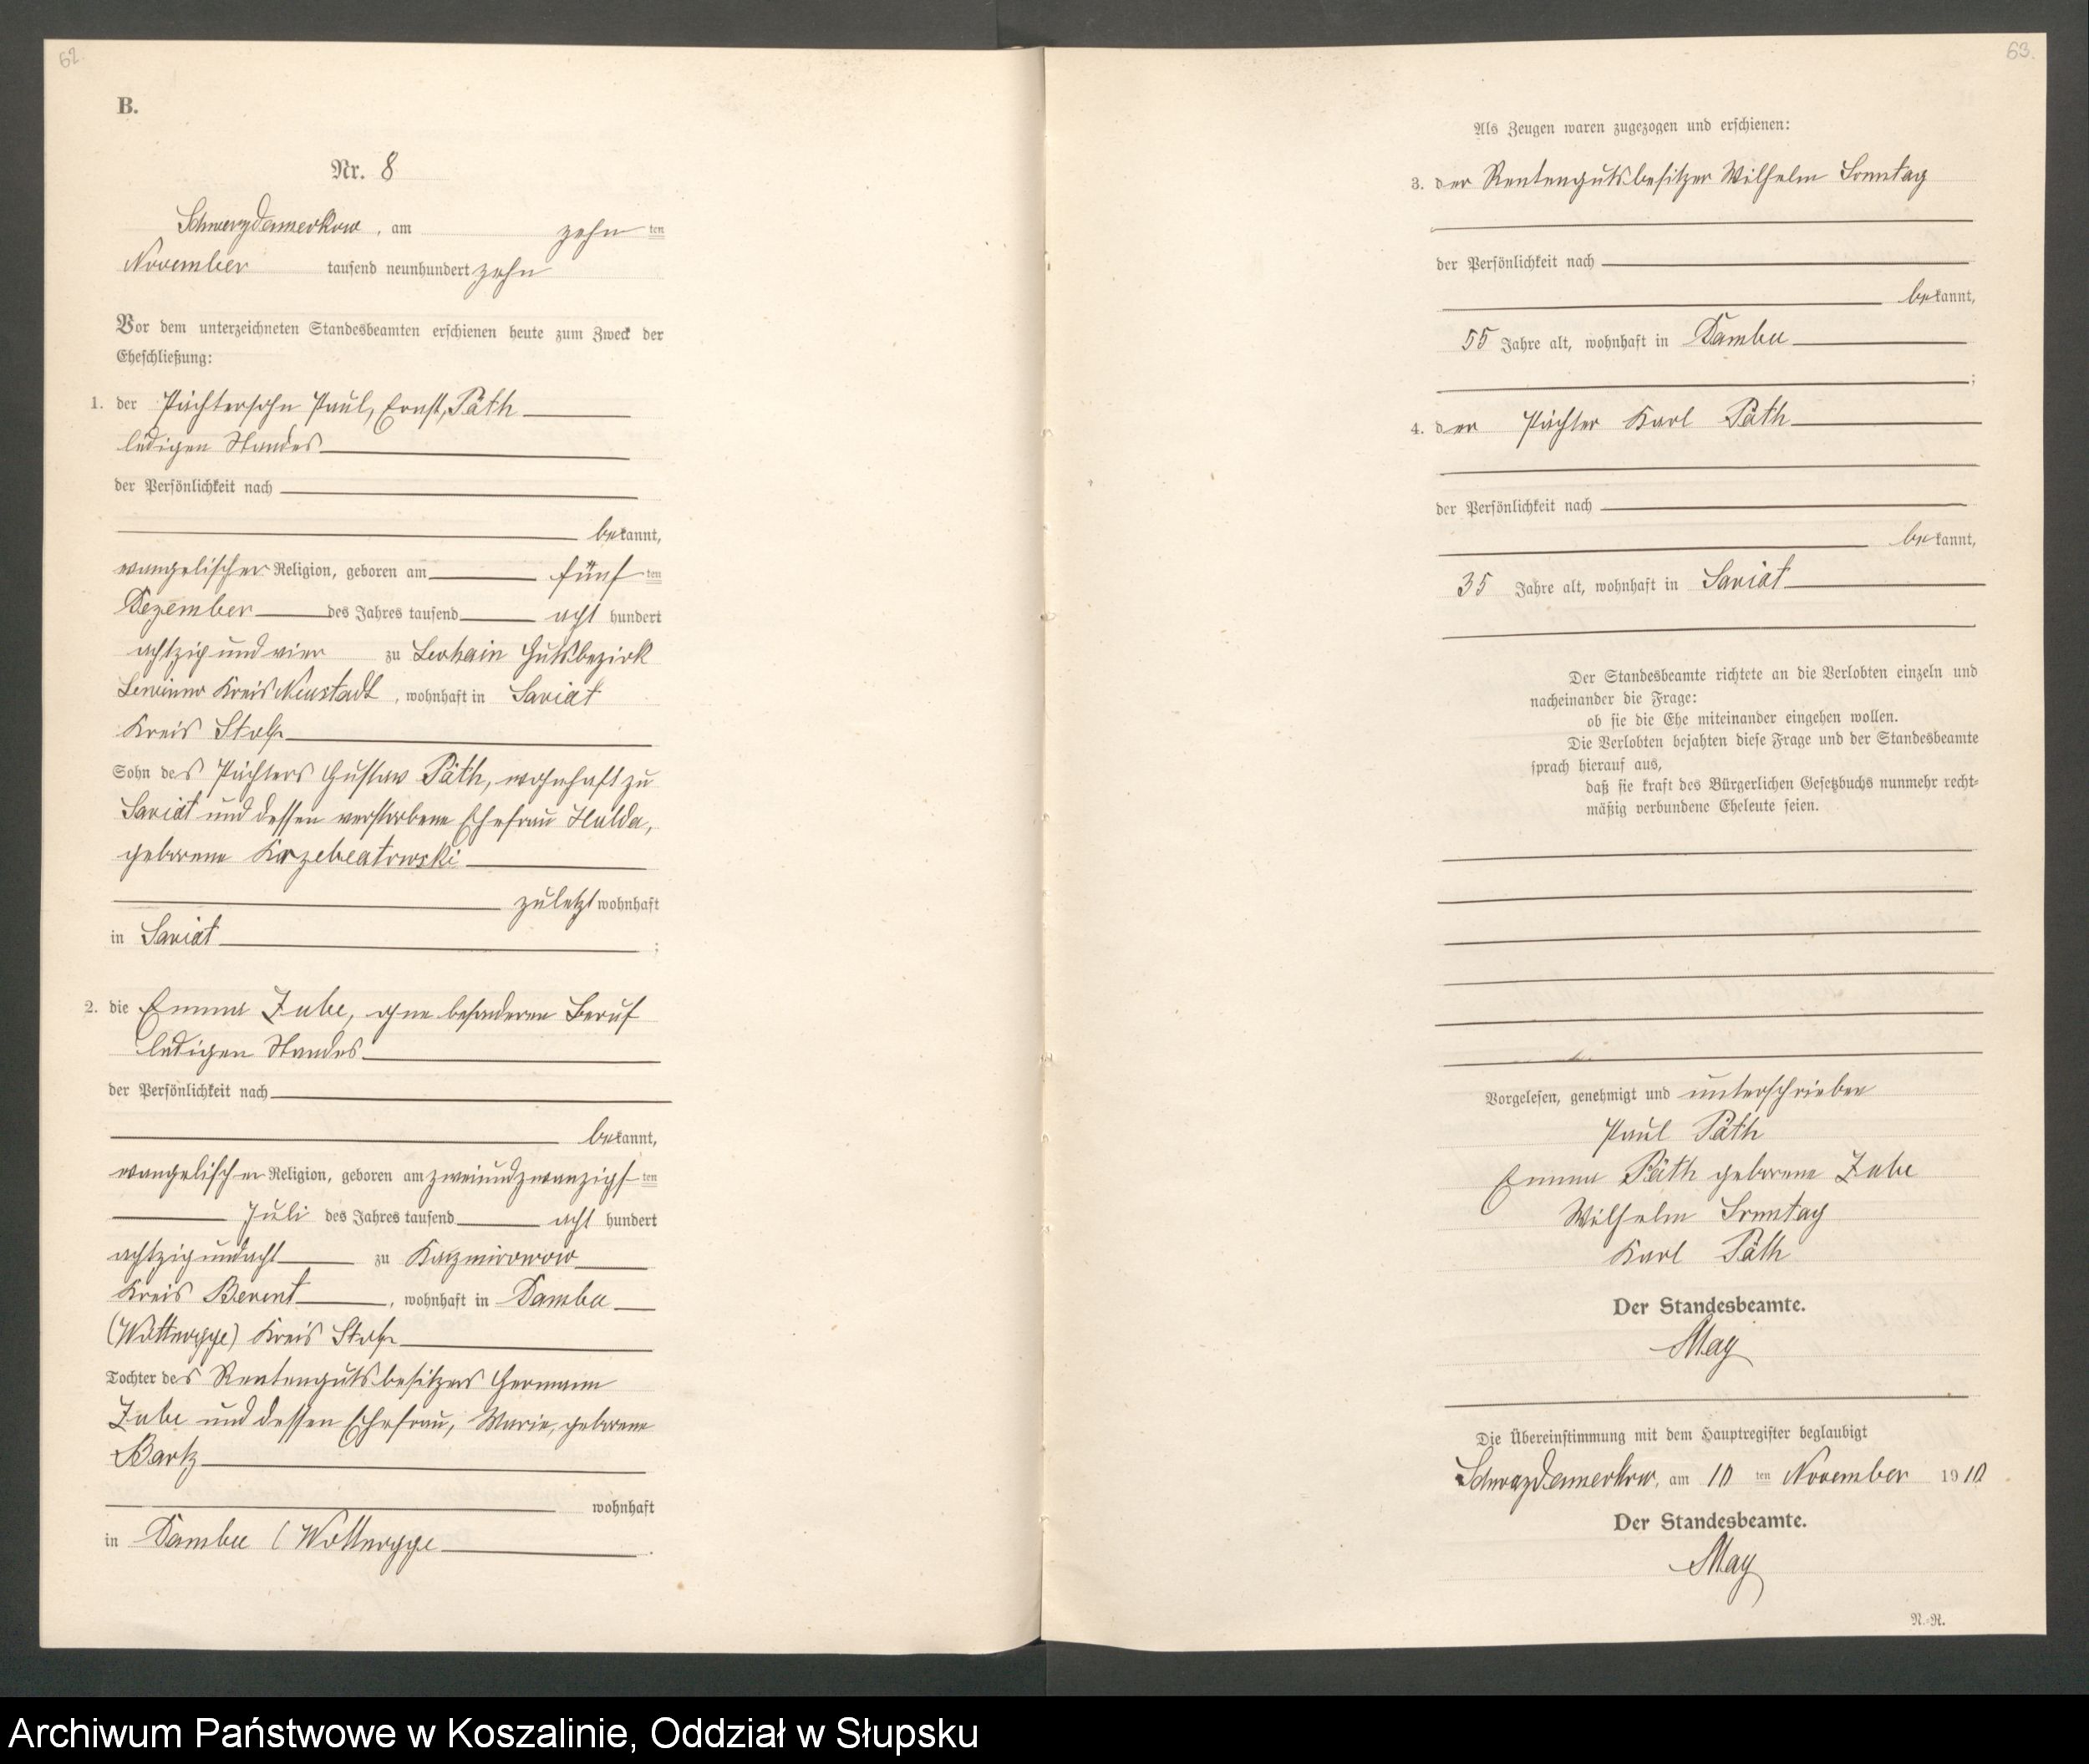 62.
B.
Nr. 8
Schwarzdamerkow, am zehn ten
November tausend neunhundert zehn
Vor dem unterzeichneten Standesbeamten erschienen heute zum Zweck der
Eheschließung:
1. der Pächtersohn Paul, Ernst, Päth
ledigen Standes
der Persönlichkeit nach
bekannt,
evangelischer Religion, geboren am fünf ten
Dezember des Jahres tausend acht hundert
achtzig und vier zu Gutsbezirk
Kreis Neustadt, wohnhaft in Saviat
Kreis Stolp
Sohn des Pächters Gustav Päth, wohnhaft zu
Saviat und dessen verstorbene Ehefrau Hulda,
geborene
zuletzt wohnhaft
in Saviat ;
2. die Emma Zube, ohne besonderen Beruf
ledigen Standes
der Persönlichkeit nach
bekannt,
evangelischer Religion, geboren am zweiundzwanzigst ten
Juli des Jahres tausend acht hundert
achtzig und acht zu
Kreis Berent, wohnhaft in Dambee
Kreis Stolp
Tochter des Rentengutsbesitzers Hermann
Zube und dessen Ehefrau, Marie, geborene
Bartz
wohnhaft
in Dambee .
63.
Als Zeugen waren zugezogen und erschienen:
3. der Rentengutsbesitzer Wilhelm Sonntag
der Persönlichkeit nach
bekannt,
55 Jahre alt, wohnhaft in Dambee
;
4. der Pächter Karl Päth
der Persönlichkeit nach
bekannt,
35 Jahre alt, wohnhaft in Saviat
Der Standesbeamte richtete an die Verlobten einzeln und
nacheinander die Frage:
ob sie die Ehe miteinander eingehen wollen.
Die Verlobten bejahten diese Frage und der Standesbeamte
sprach hierauf aus,
daß sie kraft des Bürgerlichen Gesetzbuchs nunmehr recht-
mäßig verbundene Eheleute seien.
Vorgelesen, genehmigt und unterschrieben
Paul Päth
Emma Päth geborene Zube
Wilhelm Sonntag
Karl Päth
Der Standesbeamte.
May
Die Übereinstimmung mit dem Hauptregister beglaubigt
Schwarzdamerkow, am 10 ten November 1910
Der Standesbeamte.
May
N.-R.
Archiwum Państwowe w Koszalinie, Oddział w Słupsku